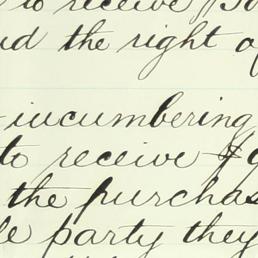 to receive
the right of
incumbering
to receive
the purchas
le party they